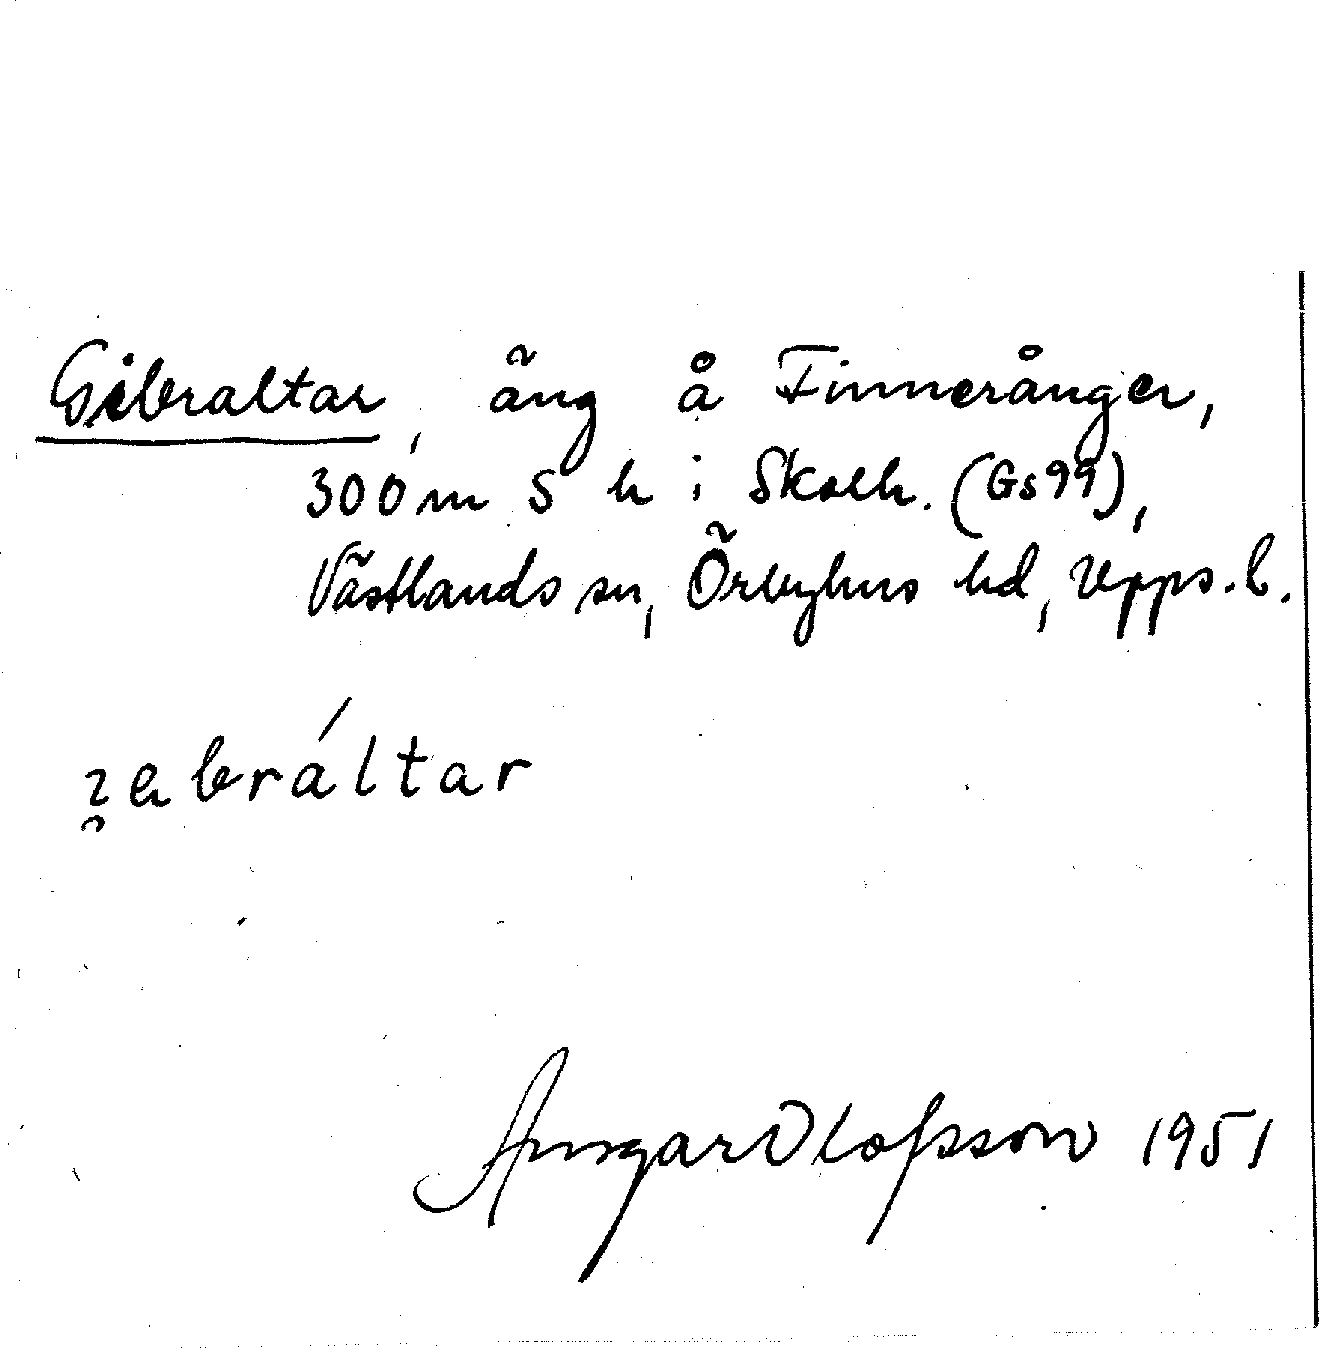 Gibraltar, äng å Finneränger,
300 m S h i Skolh. (Gs99),
Västlands sn, Örbyhus hd, Upps. l.
ɿɐbráltar
Ansgar Olofsson 1951